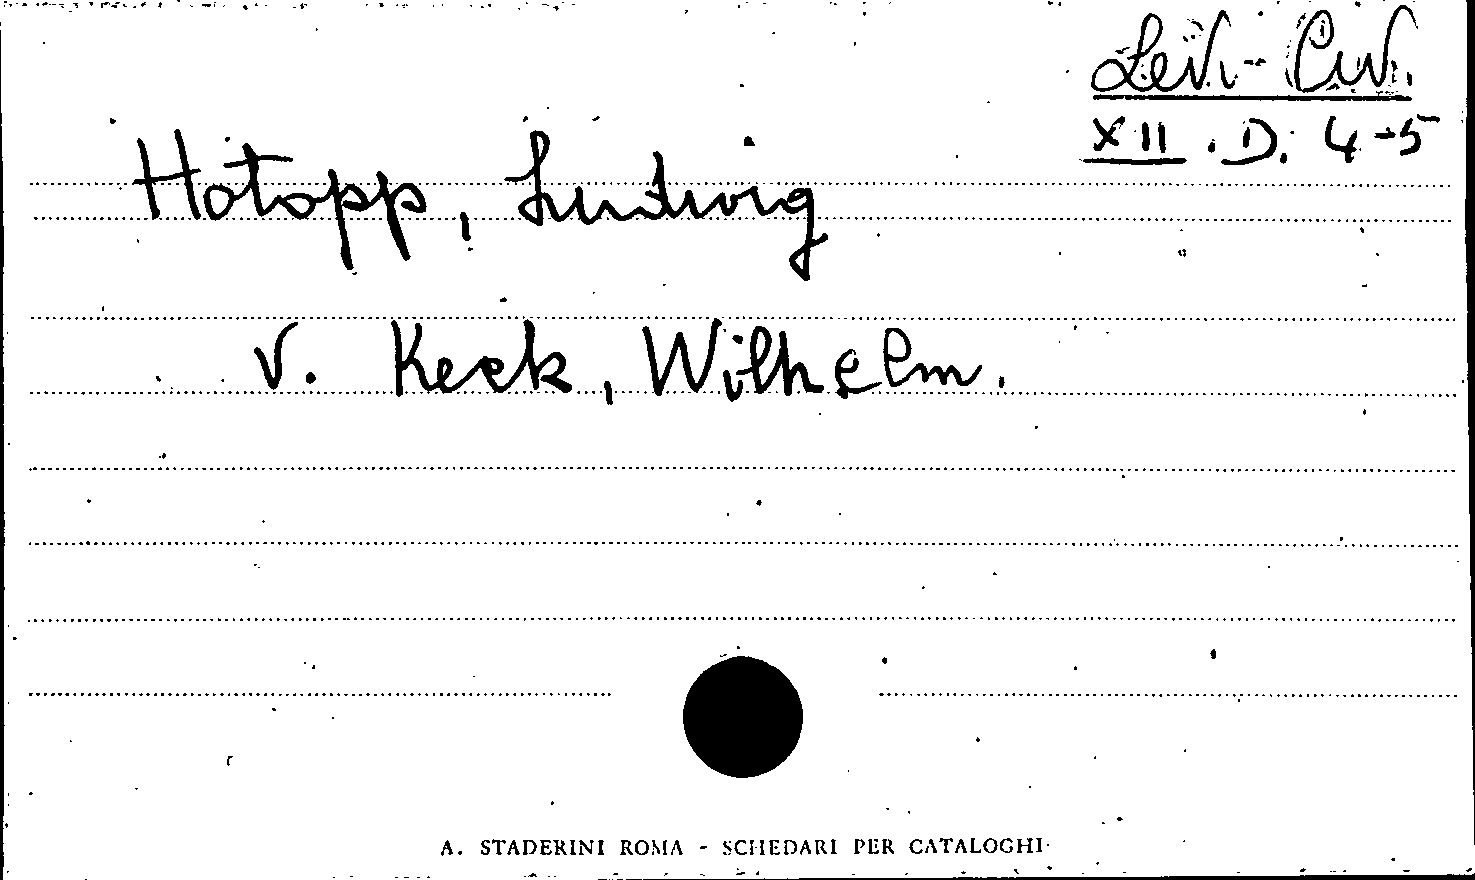 Levi-Civ.
XII. D. 4-5
Hotopp, Ludwig
V. Keck, Wilhelm.
A. STADERINI ROMA - SCHEDARI PER CATALOGHI